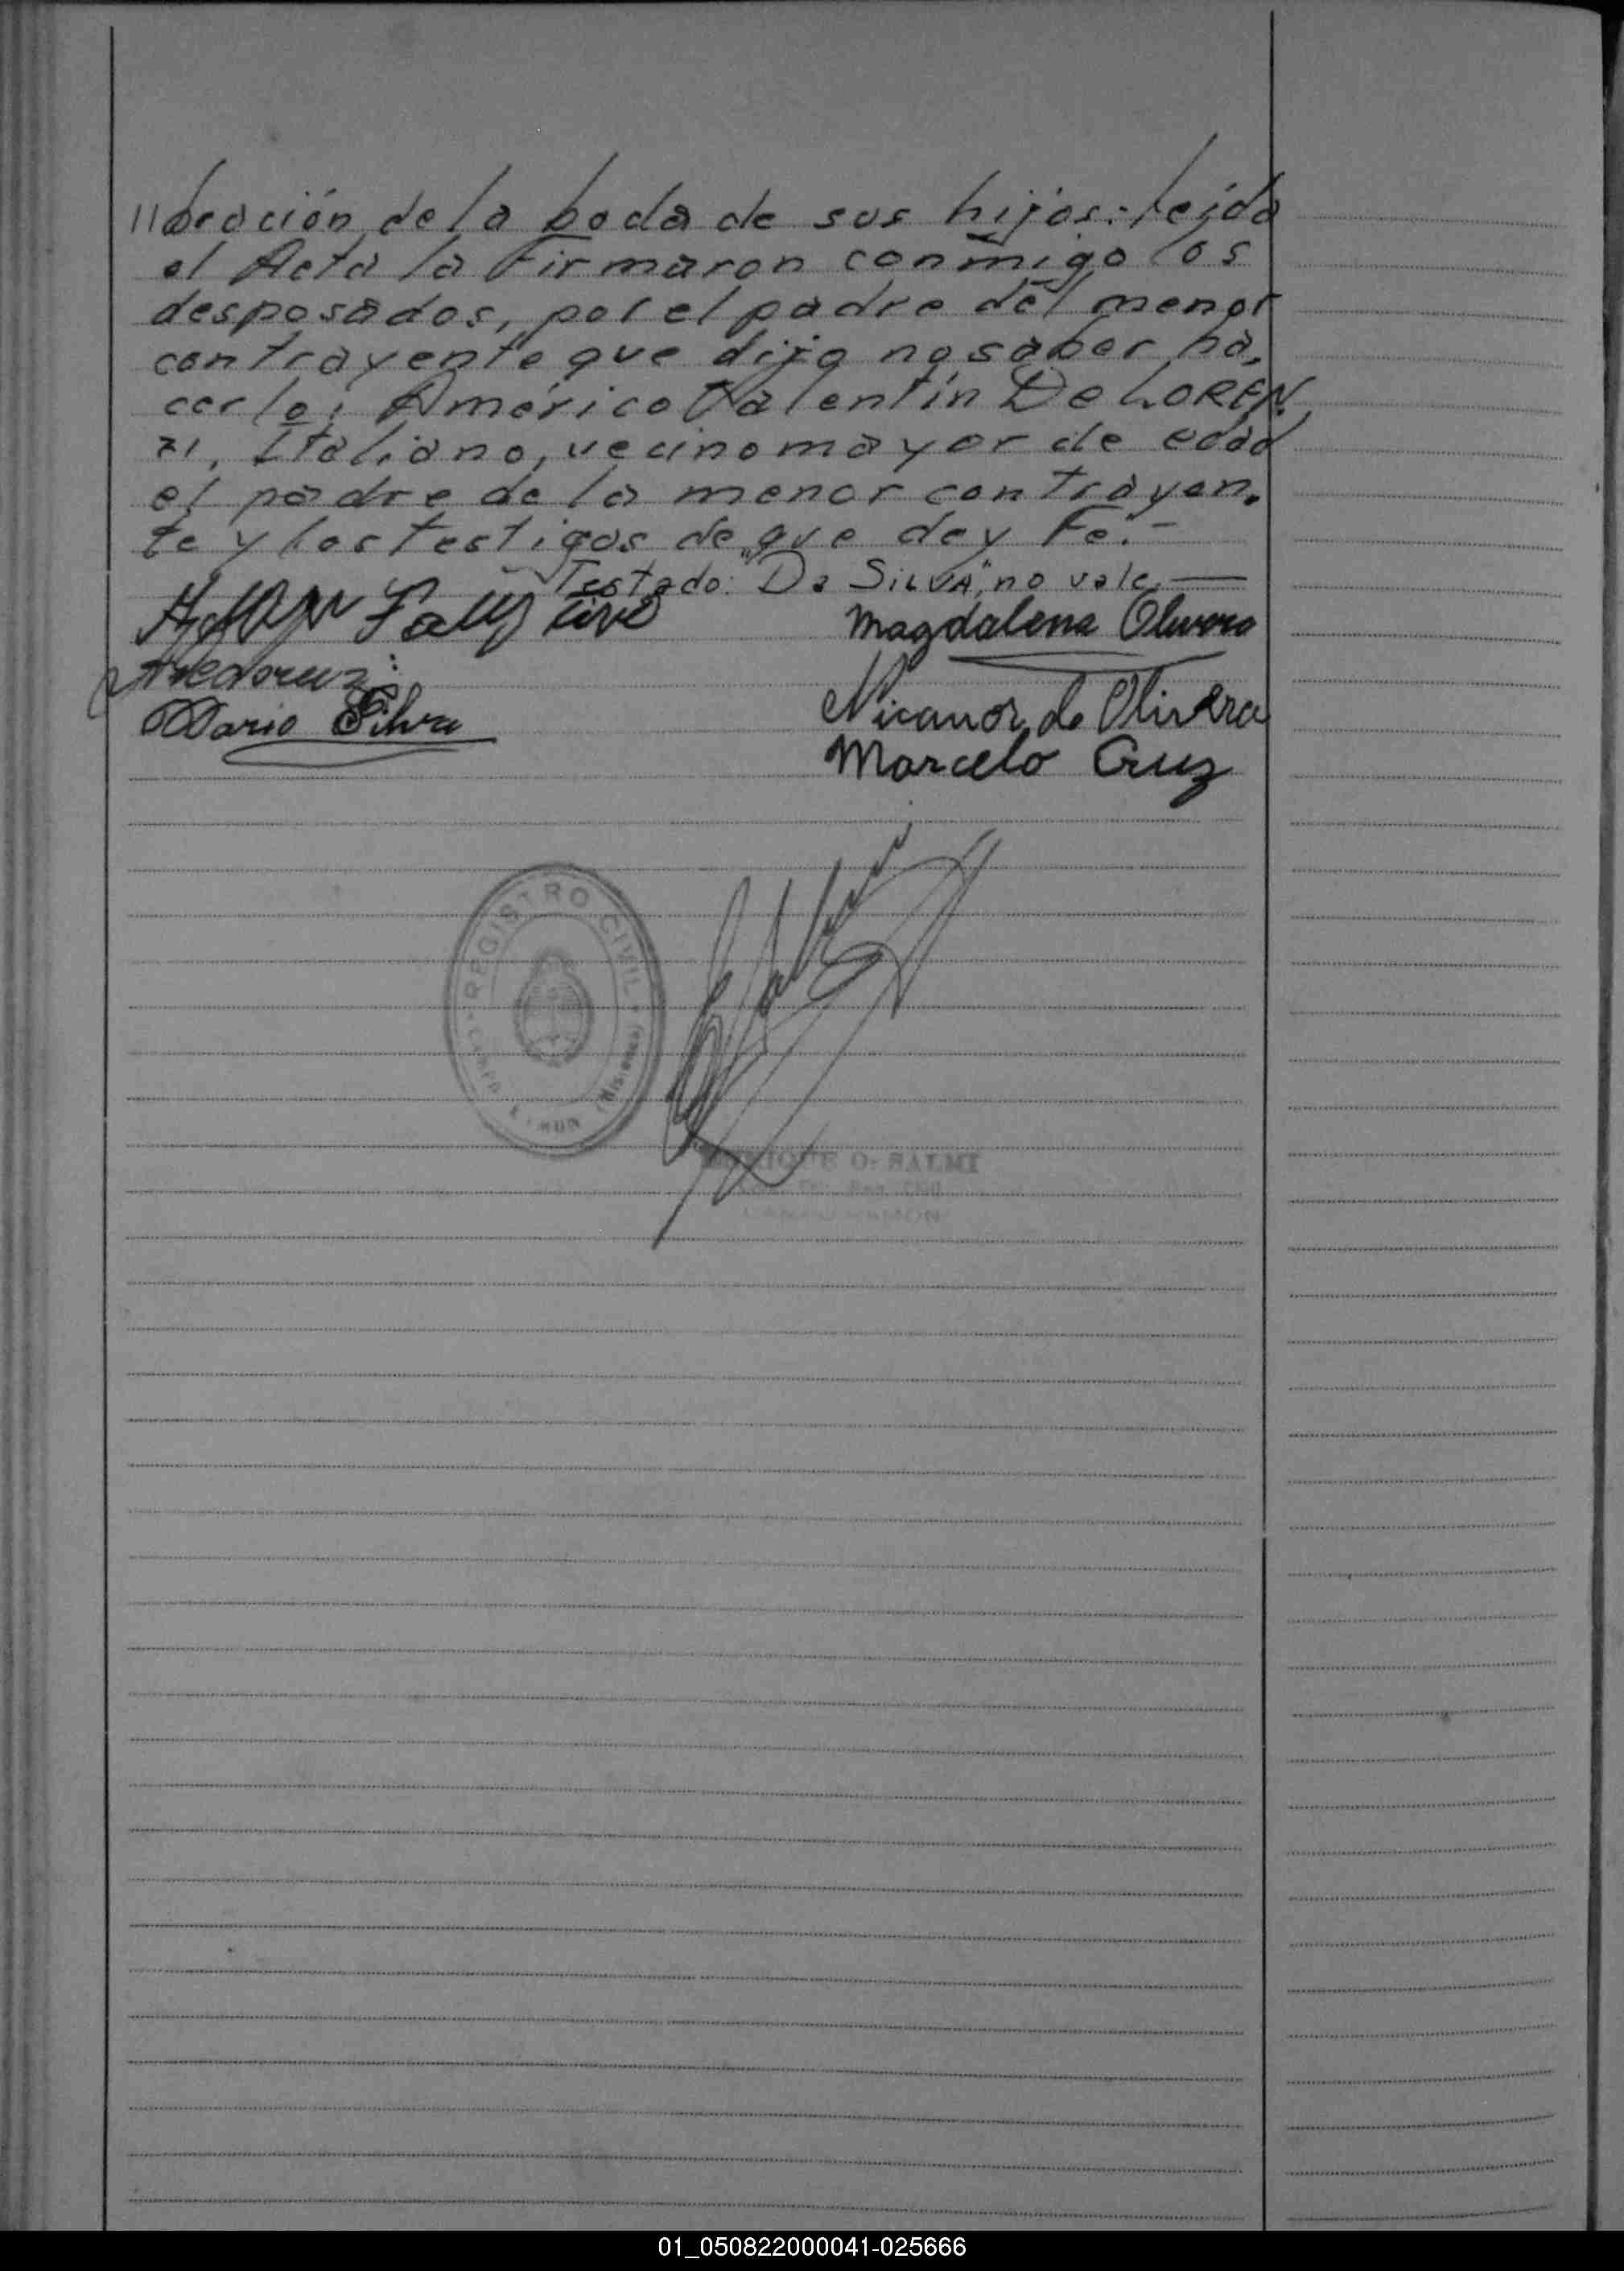 //bración de la boda de sus hijos.- Leída
el Acta la Firmaron conmigo los
desposados, por el padre del menor
contrayente que dijo no saber ha-
cerlo; Américo Valentín De LOREN-
ZI, Italiano, vecino mayor de edad
el padre de la menor contrayen-
te y los testigos de que doy Fe.-
Testado: "Da SILVA", no vale.—
Magdalena Olivera
Dario Silva
Nicanor de Olivera
Marcelo Cruz
REGISTRO CIVIL
(Misiones)
ENRIQUE O. SALMI
CAMPO RAMON
01_050822000041-025666